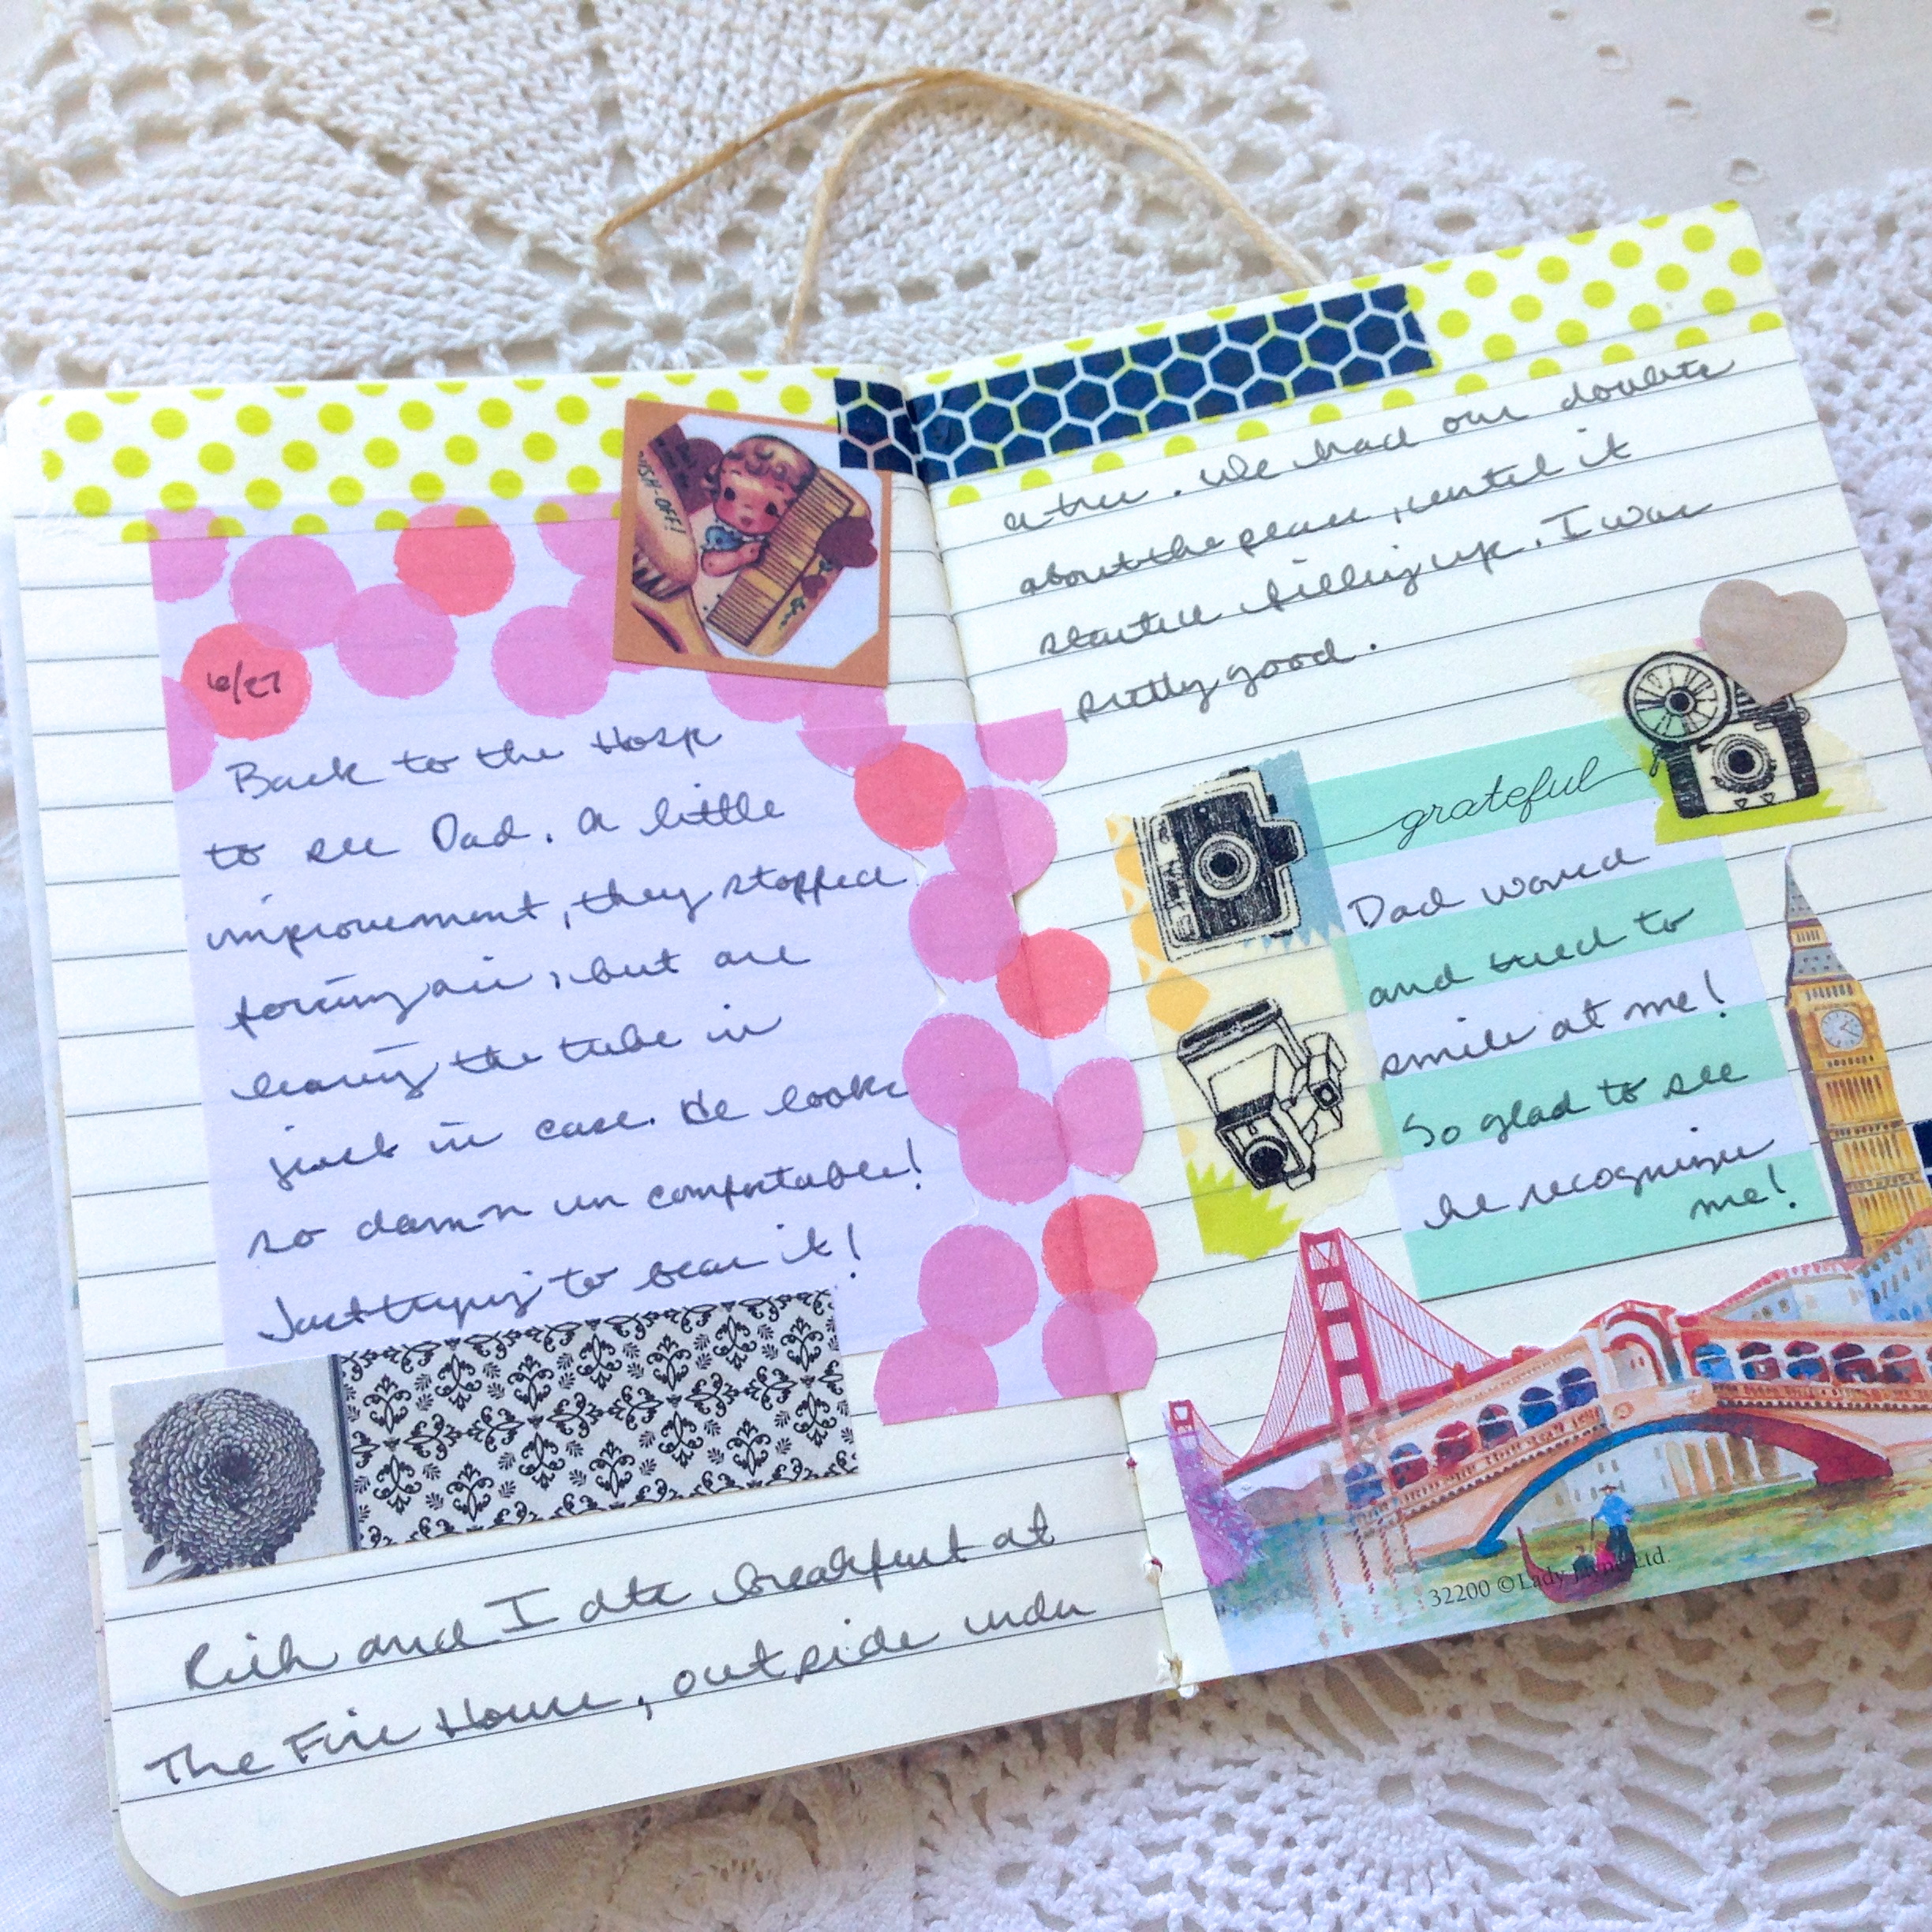 USH-OFF!
6/27
Back to the Hosp
to see Dad. A little
improvement, they stopped
forcing air, but are
leaving the tube in
just in case. He looks
so damn un comfortable!
Just trying to bear it!
Rich and I ate breakfast at
The Fire House, outside under
a tree. We had our doubts
about the place, until it
started filling up. I was
pretty good.
grateful
Dad waved
and tried to
smile at me!
So glad to see
he recognize
me!
32200 © Lady Jayne Ltd.